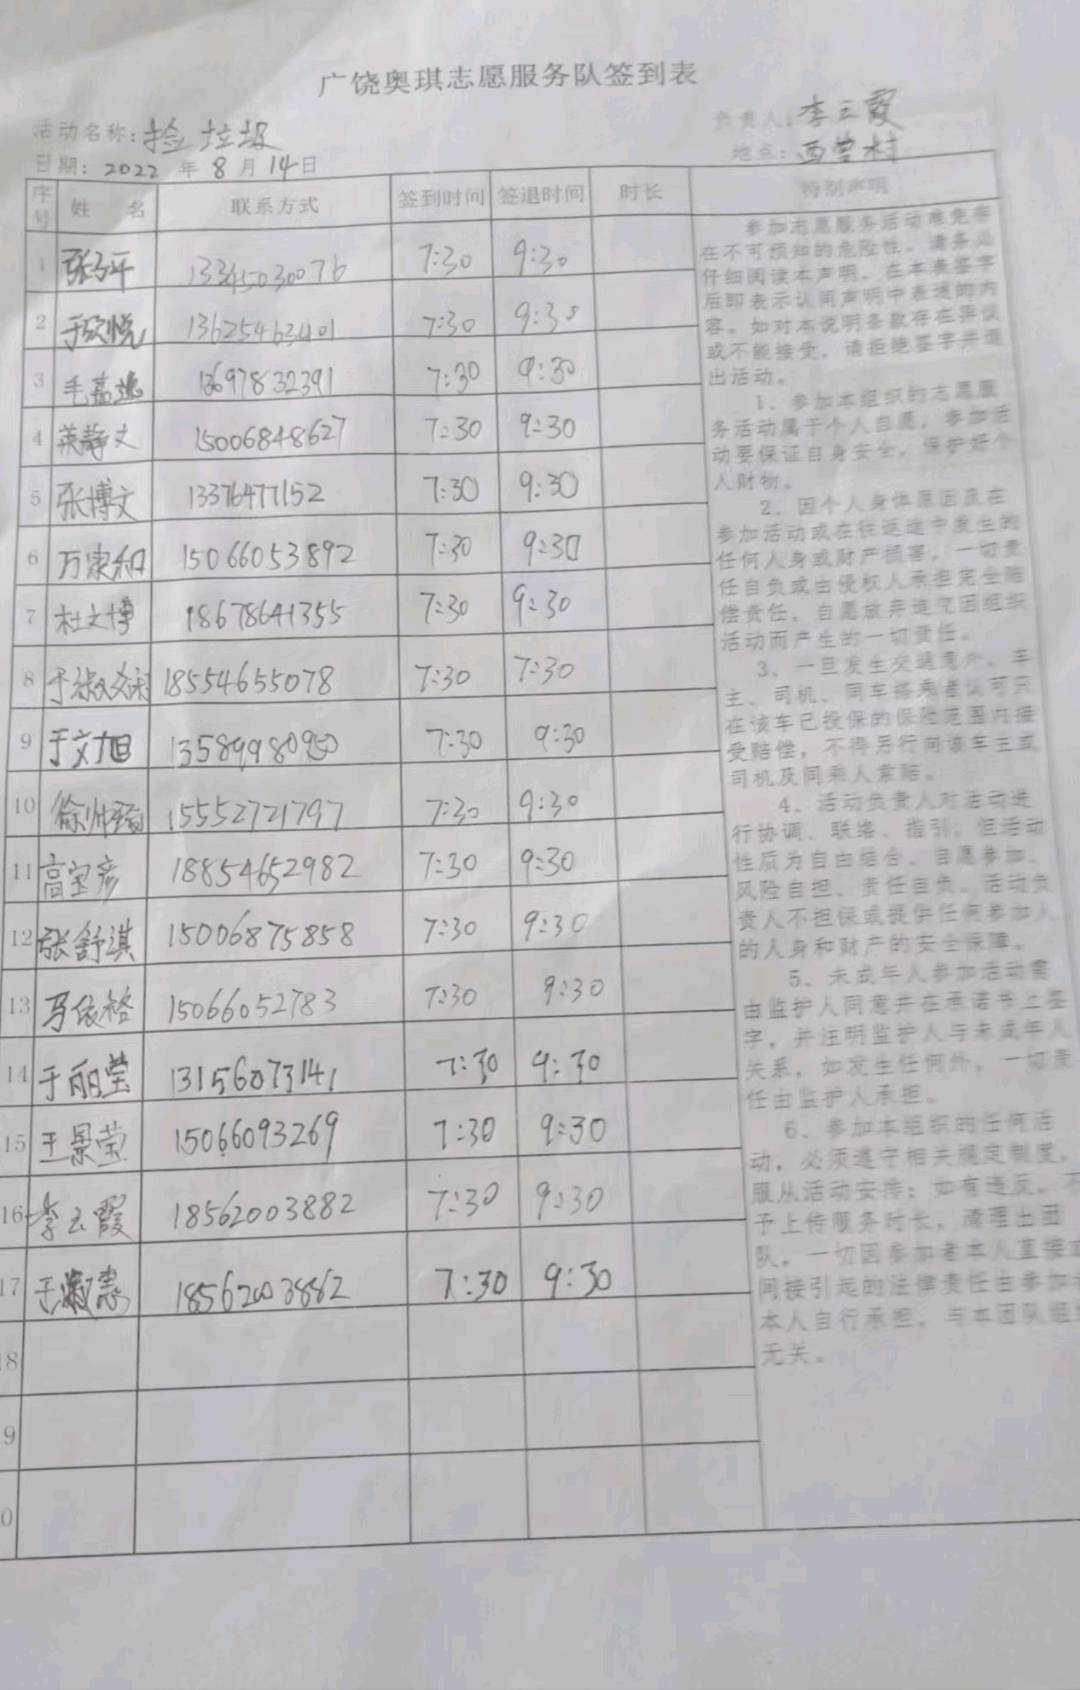 广饶奥琪志愿服务队签到表
活动名称：捡垃圾 负责人：李云霞
日期：2022年8月14日 地点：西营村
序号 姓 名 联系方式 签到时间 签退时间 时长 特别声明
1 13345030076 7:30 9:30
2 于欣悦 13625463401 7:30 9:30
3 毛嘉逸 13697832391 7:30 9:30
4 英静文 15006848627 7:30 9:30
5 张博文 13376477152 7:30 9:30
6 万家和 15066053892 7:30 9:30
7 杜文博 18678641355 7:30 9:30
8 于淑 18554655078 7:30 7:30
9 于文旭 13589980950 7:30 9:30
10 徐帅 15552721797 7:30 9:30
11 高宝彦 18854652982 7:30 9:30
12 张舒淇 15006875858 7:30 9:30
13 马依格 15066052783 7:30 9:30
14 于丽莹 13156073141 7:30 9:30
15 王景莹 15066093269 7:30 9:30
16 李云霞 18562003882 7:30 9:30
17 于淑惠 18562003882 7:30 9:30
18
9
0
参加志愿服务活动难免存
在不可预知的危险性。请务必
仔细阅读本声明。在本表签字
后即表示认同声明中表述的内
容。如对本说明条款存在异议
或不能接受，请拒绝签字并退
出活动。
1、参加本组织的志愿服
务活动属于个人自愿，参加活
动要保证自身安全，保护好个
人财物。
2、因个人身体原因及在
参加活动或在往返途中发生的
任何人身或财产损害，一切责
任自负或由侵权人承担完全赔
偿责任，自愿放弃追究因组织
活动而产生的一切责任。
3、一旦发生交通意外，车
主、司机、同车搭乘者认可只
在该车已投保的保险范围内接
受赔偿，不得另行向该车主或
司机及同乘人索赔。
4、活动负责人对活动进
行协调、联络、指引，但活动
性质为自由结合、自愿参加、
风险自担、责任自负。活动负
责人不担保或提供任何参加人
的人身和财产的安全保障。
5、未成年人参加活动需
由监护人同意并在承诺书上签
字，并注明监护人与未成年人
关系，如发生任何外，一切责
任由监护人承担。
6、参加本组织的任何活
动，必须遵守相关规定制度，
服从活动安排；如有违反，不
予上传服务时长，清理出团
队，一切因参加者本人直接或
间接引起的法律责任由参加者
本人自行承担，与本团队组织
无关。